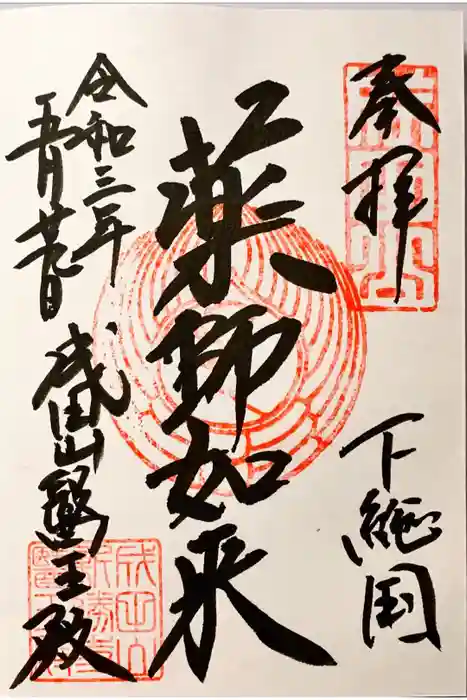 奉拝
下総国
薬師如来
令和三年
五月廿九日
成田山醫王殿